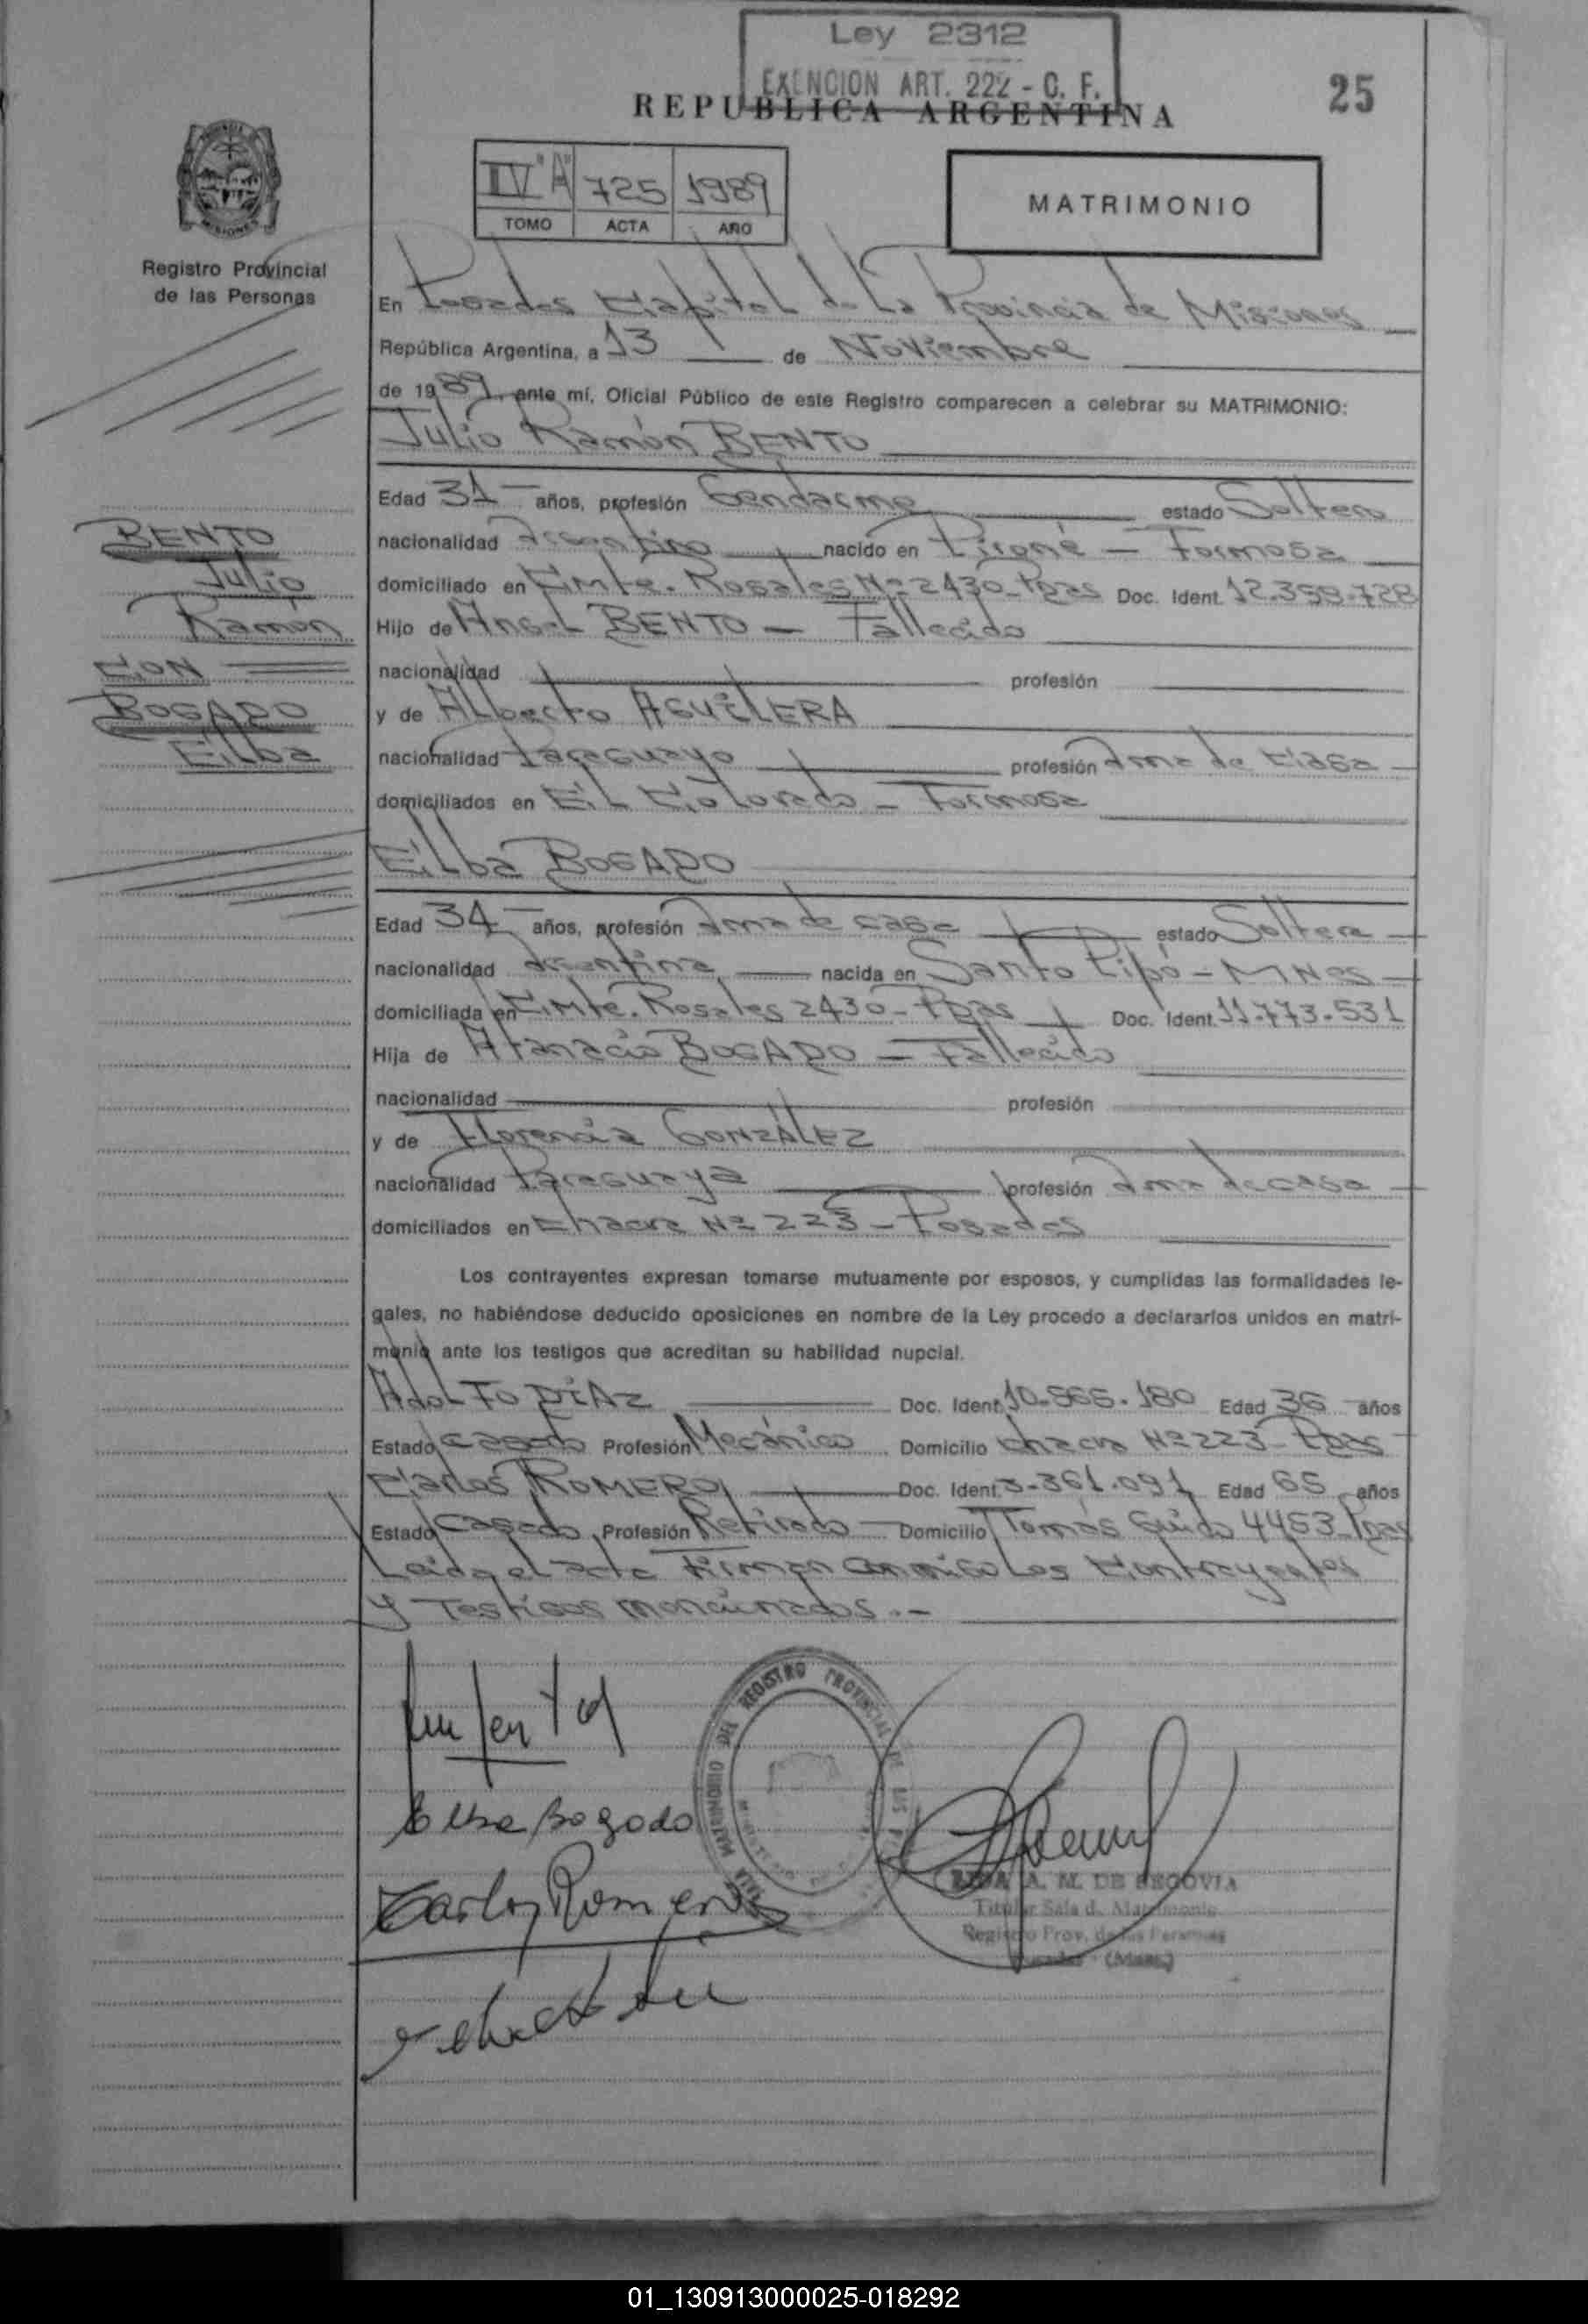 Ley 2312
EXENCION ART. 222 - C. F.
25
REPUBLICA ARGENTINA
IV "A" 725 1989
TOMO ACTA AÑO
MATRIMONIO
MISIONES
Registro Provincial
de las Personas
En Posadas Capital de La Provincia de Misiones
República Argentina, a 13 de Noviembre
de 1989, ante mí, Oficial Público de este Registro comparecen a celebrar su MATRIMONIO:
Julio Ramón BENTO
Edad 31 años, profesión Gendarme estado Soltero
nacionalidad Argentino nacido en Pirané - Formosa
domiciliado en Cmte. Rosales Nº 2430 - Pdas Doc. Ident. 12.359.728
Hijo de Angel BENTO - Fallecido
nacionalidad profesión
y de Alberto AGUILERA
nacionalidad Paraguayo profesión Ama de Casa
domiciliados en El Colorado - Formosa
BENTO
Julio
Ramon
CON
BOGADO
Elba
Elba BOGADO
Edad 34 años, profesión Ama de casa estado Soltera
nacionalidad Argentina nacida en Santo Pipó - MNes
domiciliada en Cmte. Rosales 2430 - Pdas Doc. Ident. 11.773.531
Hija de Atanacio BOGADO - Fallecido
nacionalidad profesión
y de Florencia GONZÁLEZ
nacionalidad Paraguaya profesión Ama de casa
domiciliados en Chacra Nº 223 - Posadas
Los contrayentes expresan tomarse mutuamente por esposos, y cumplidas las formalidades le-
gales, no habiéndose deducido oposiciones en nombre de la Ley procedo a declararlos unidos en matri-
monio ante los testigos que acreditan su habilidad nupcial.
Adolfo DÍAZ Doc. Ident. 10.565.180 Edad 36 años
Estado Casado Profesión Mecánico Domicilio chacra Nº 223 - Pdas
Carlos ROMERO Doc. Ident. 3.361.091 Edad 65 años
Estado Casado Profesión Retirado Domicilio Tomás Guido 4453 - Pdas
Leida el acta Firman conmigo Los Contrayentes
y Testigos mencionados.-
REGISTRO PROVINCIAL DE LAS
Elba Bogado
Carlos Romero
A. M. DE SEGOVIA
Titular Sala d. Matrimonio
Registro Prov. de las Personas
Posadas - (Mnes.)
01_130913000025-018292